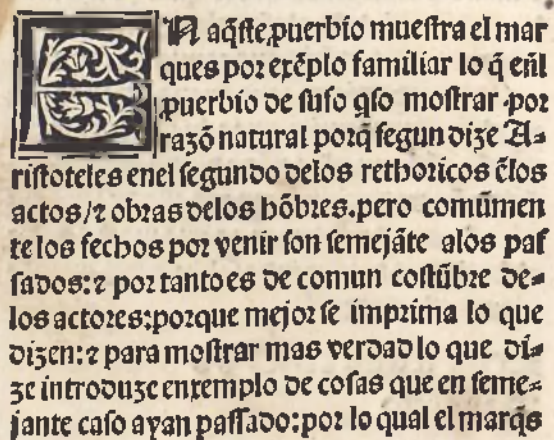 EN aq̃ste ꝓuerbio muestra el mar
ques por exẽplo familiar lo q̃ eñl
ꝓuerbio de suso q̃so mostrar por
razõ natural porq̃ segun dize A-
ristoteles enel segundo delos rethoricos q̃los
actos/⁊ obras delos hõbres. pero comũmen
te los fechos por venir son semejãte alos pas
sados:⁊ por tanto es de comun costũbre de-
los actores:porque mejor se imprima lo que
dizen:⁊ para mostrar mas verdad lo que di-
ze introduze enxemplo de cosas que en seme-
jante caso ayan passado:por lo qual el marq̃s